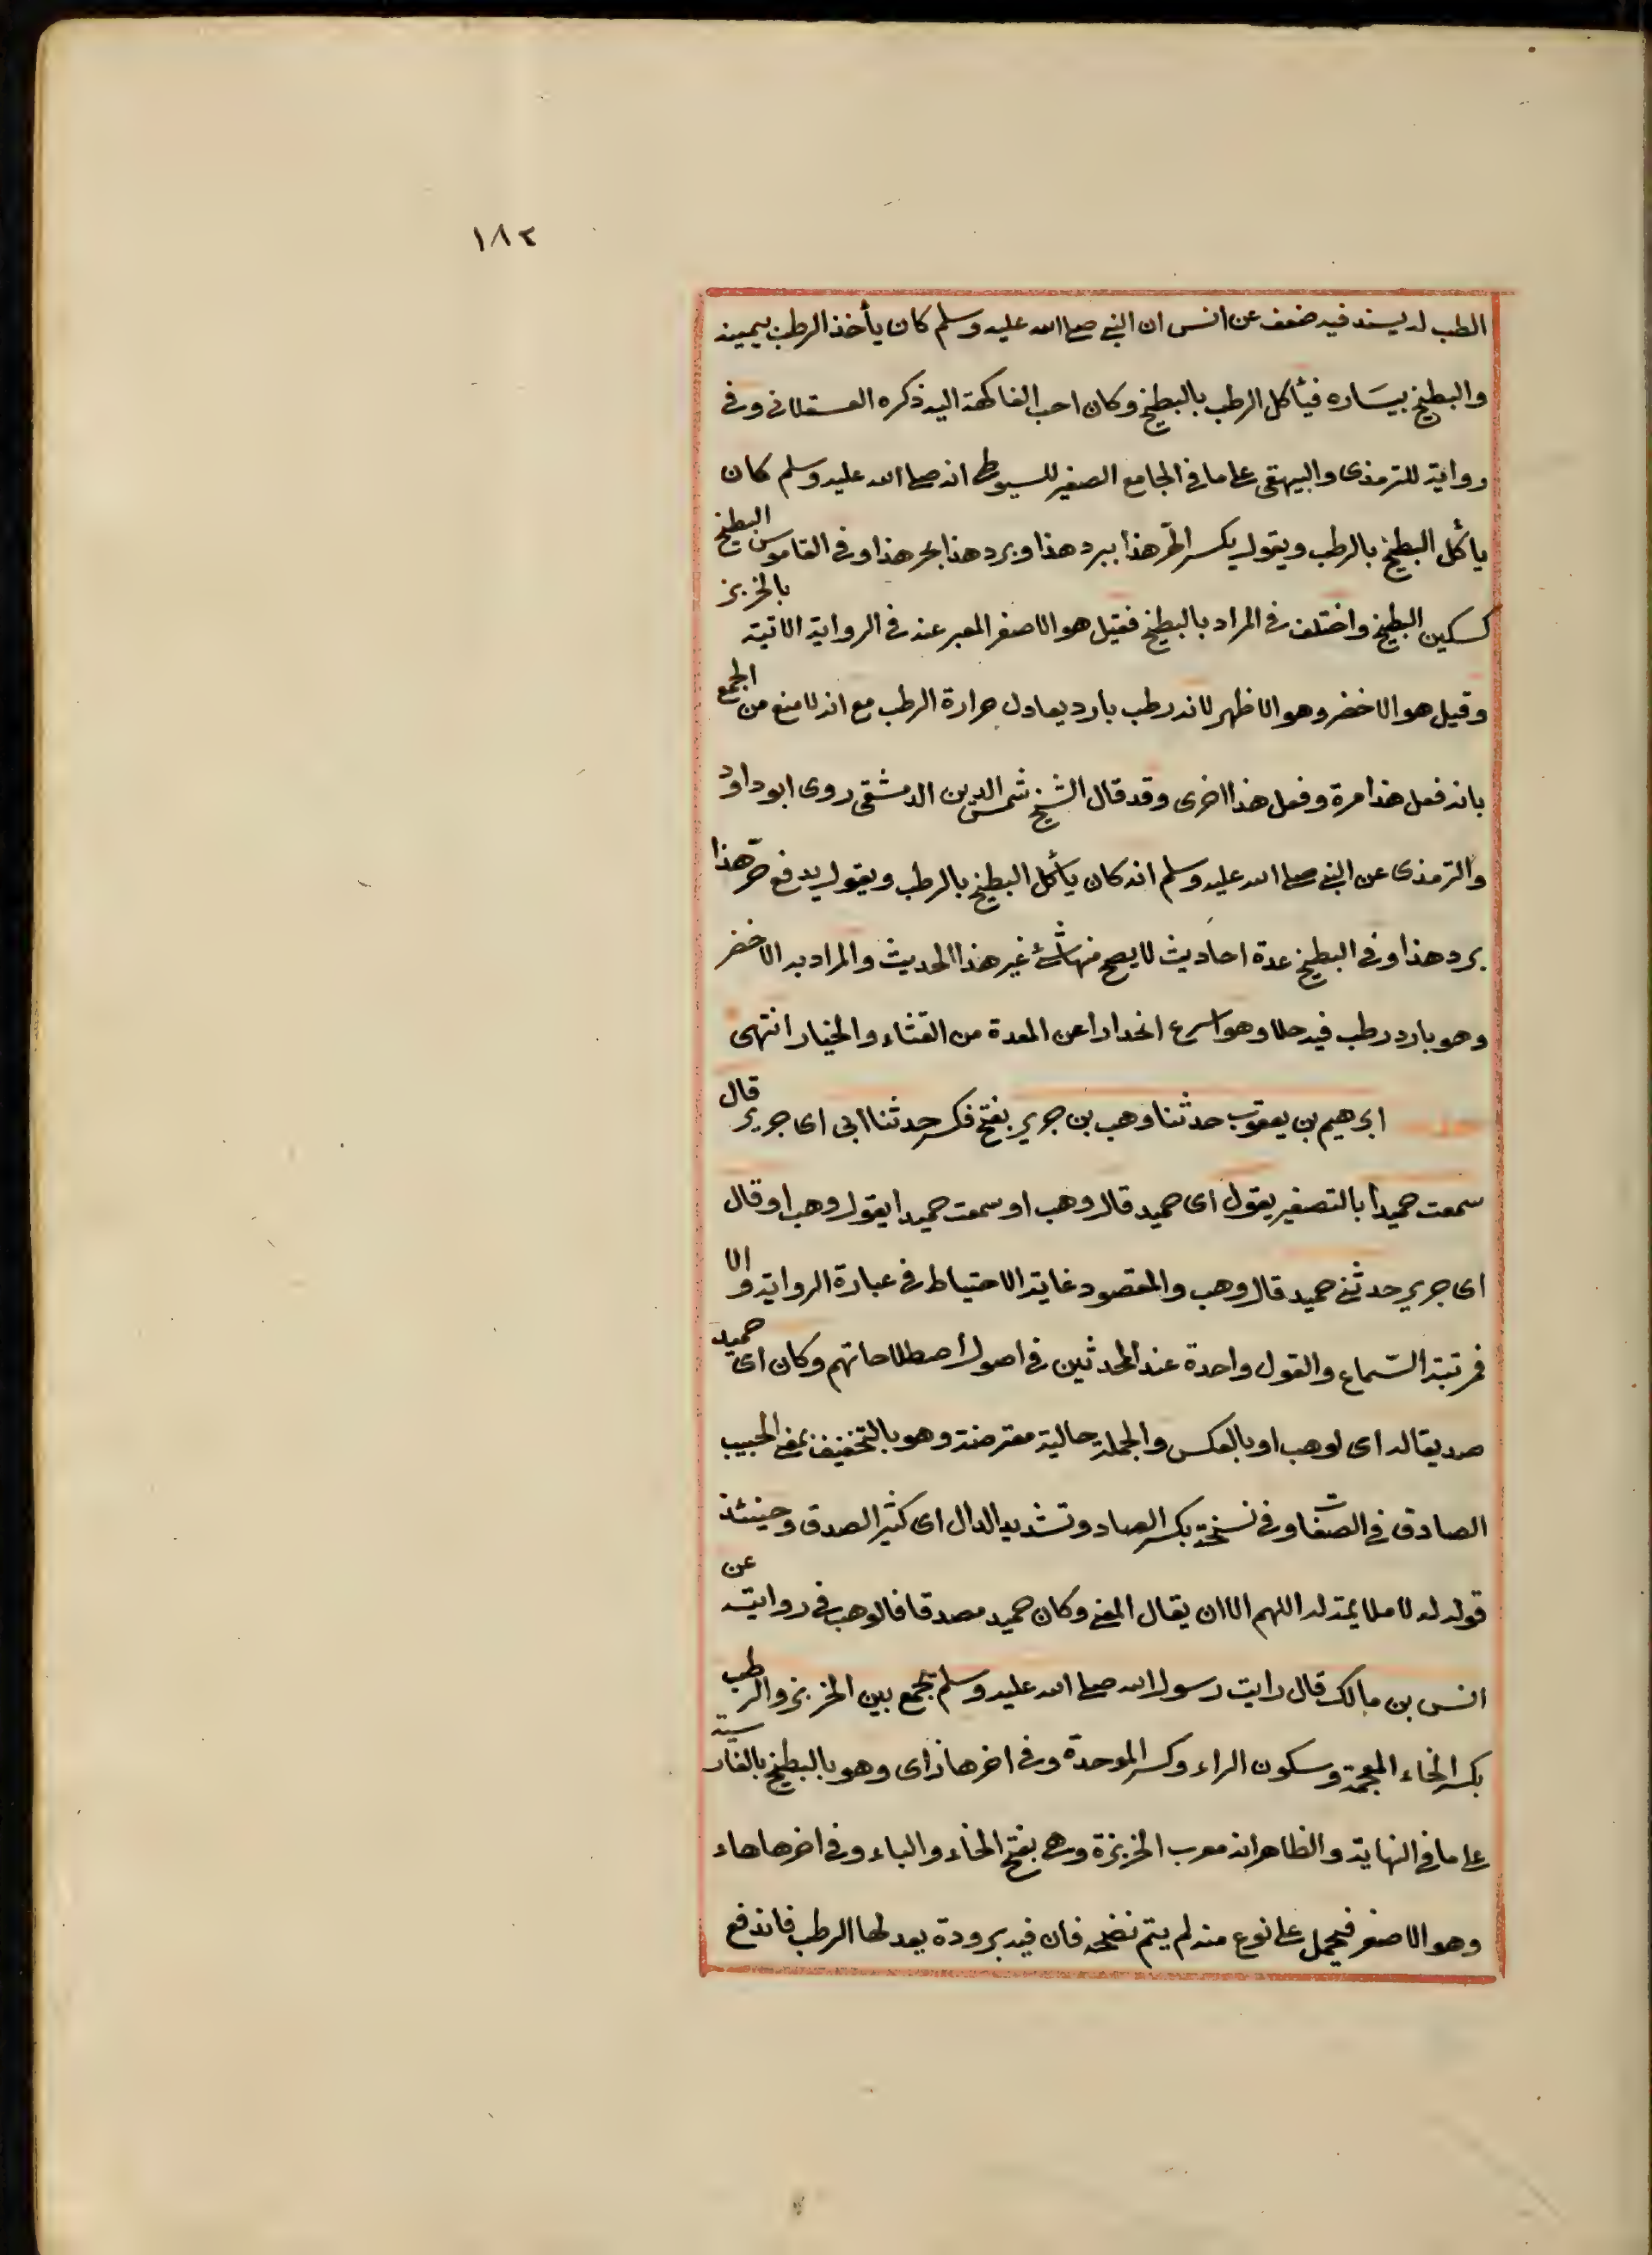 ١٨٢
الطب له بسند فيه ضعف عن انس ان النبي صلى الله عليه وسلم كان يأخذ الرطب بيمينه
والبطيخ بيساره فيأكل الرطب بالبطيخ وكان احب الفاكهة اليه ذكره العسقلاني وفي
رواية للترمذي والبيهقي على ما في الجامع الصغير للسيوطي انه صلى الله عليه وسلم كان
يأكل البطيخ بالرطب ويقول يكسر الحر هذا ببرد هذا وبرد هذا بحر هذا وفي القاموس البطيخ
كسكين البطيخ واختلف في المراد بالبطيخ فقيل هو الاصفر المعبر عنه في الرواية الاتية بالخربز
وقيل هو الاخضر وهو الاظهر لانه رطب بارد يعادل حرارة الرطب مع انه لا منع من الجمع
بانه فعل هذا مرة وفعل هذا اخرى وقد قال الشيخ شمس الدين الدمشقي روى ابو داود
والترمذي عن النبي صلى الله عليه وسلم انه كان يأكل البطيخ بالرطب ويقول يدفع حر هذا
برد هذا وفي البطيخ عدة احاديث لا يصح منها شئ غير هذا الحديث والمراد به الاخضر
وهو بارد رطب فيه حلا وهو اسرع انحدارا عن المعدة من القثاء والخيار انتهى
ابرهيم بن يعقوب حدثنا وهب بن جرير بفتح فكسر حدثنا ابي اى جرير قال
سمعت حميدا بالتصغير يقول اى حميد قال وهب او سمعت حميدا يقول وهب او قال
اى جرير حدثني حميد قال وهب والمقصود غاية الاحتياط في عبارة الرواية والا
فمرتبة السماع والقول واحدة عند المحدثين في اصول اصطلاحاتهم وكان اى حميد
صديقا له اى لوهب او بالعكس والجملة حالية معترضة وهو بالتخفيف بمعنى الحبيب
الصادق في الصفات وفي نسخة بكسر الصاد وتشديد الدال اى كثير الصدق وحينئذ
قوله له لا ملايمة له اللهم الا ان يقال المعنى وكان حميد مصدقا فالوهب في روايته عن
انس بن مالك قال رايت رسول الله صلى الله عليه وسلم يجمع بين الخربز والرطب
بكسر الخاء المعجمة وسكون الراء وكسر الموحدة وفي اخرها زاى وهو بالبطيخ بالفارسية
على ما في النهاية والظاهر انه معرب الخربزة وهي بفتح الخاء والباء وفي اخرها هاء
وهو الاصفر فيحمل على نوع منه لم يتم نضجه فان فيه برودة يعدلها الرطب فاندفع